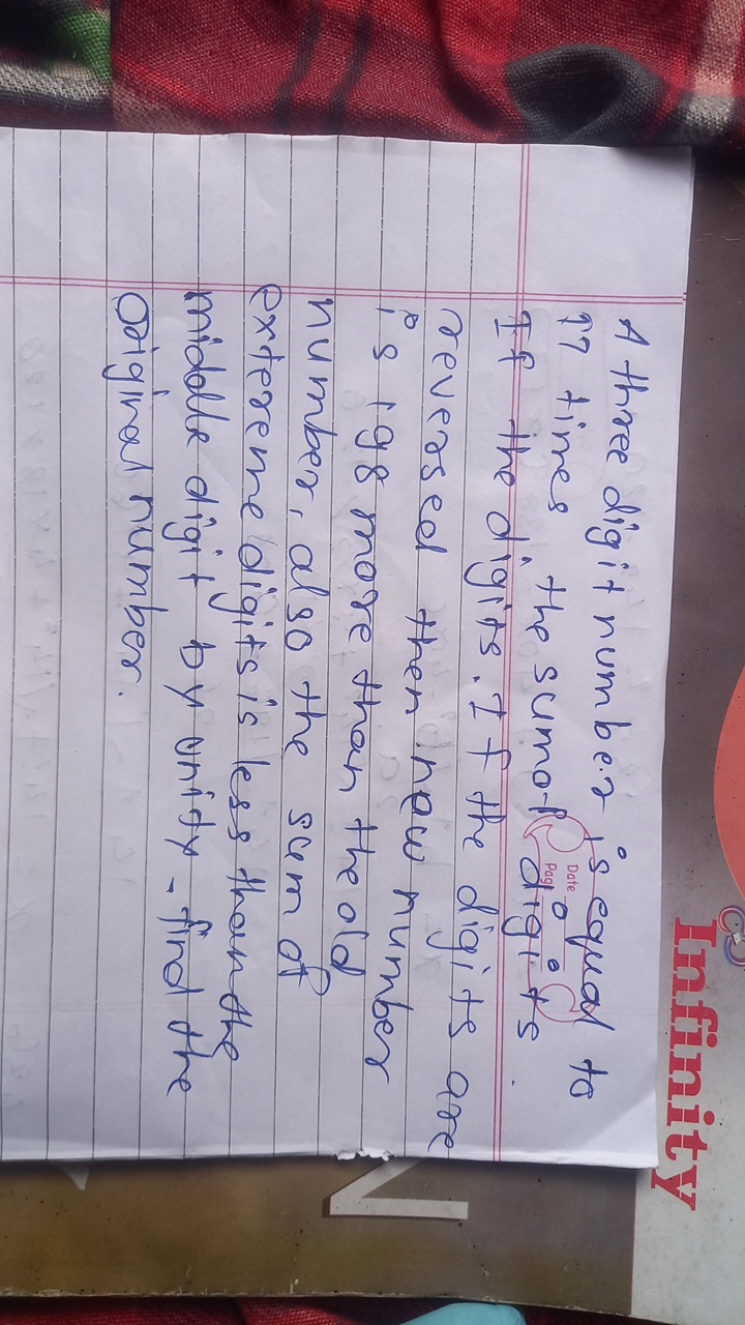 Infinity
Date
Page
A three digit number is equal to
17 times the sum of digits
If the digits. If the digits are
reversed then new number
is 198 more than the old
number, also the sum of
extereme digits is less than the
middle digit by unity - find the
Original number.
N